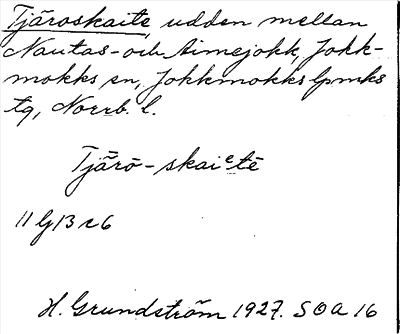 Tjäroskaite, udden mellan
Nautas- och Aimejokk, Jokk-
mokks sn, Jokkmokks lpmks
tg, Norrb. l.
Tjārō-skaiᵉtē
11 G 13 c 6
H. Grundström 1927. SOA 16